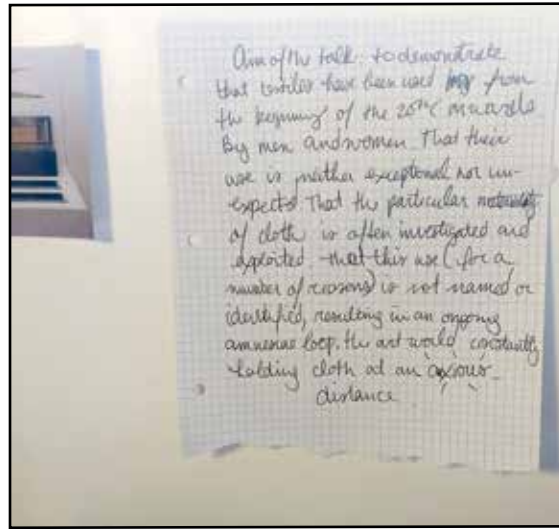 Aim of the talk: to demonstrate
that textiles have been used from
the beginning of the 20thC onwards
By men and women. That their
use is neither exceptional nor un-
expected That the particular materiality
of cloth is often investigated and
exploited. that this use (for a
number of reasons) is not named or
identified, resulting in an ongoing
amnesiac loop, the art world constantly
holding cloth at an anxious
distance.